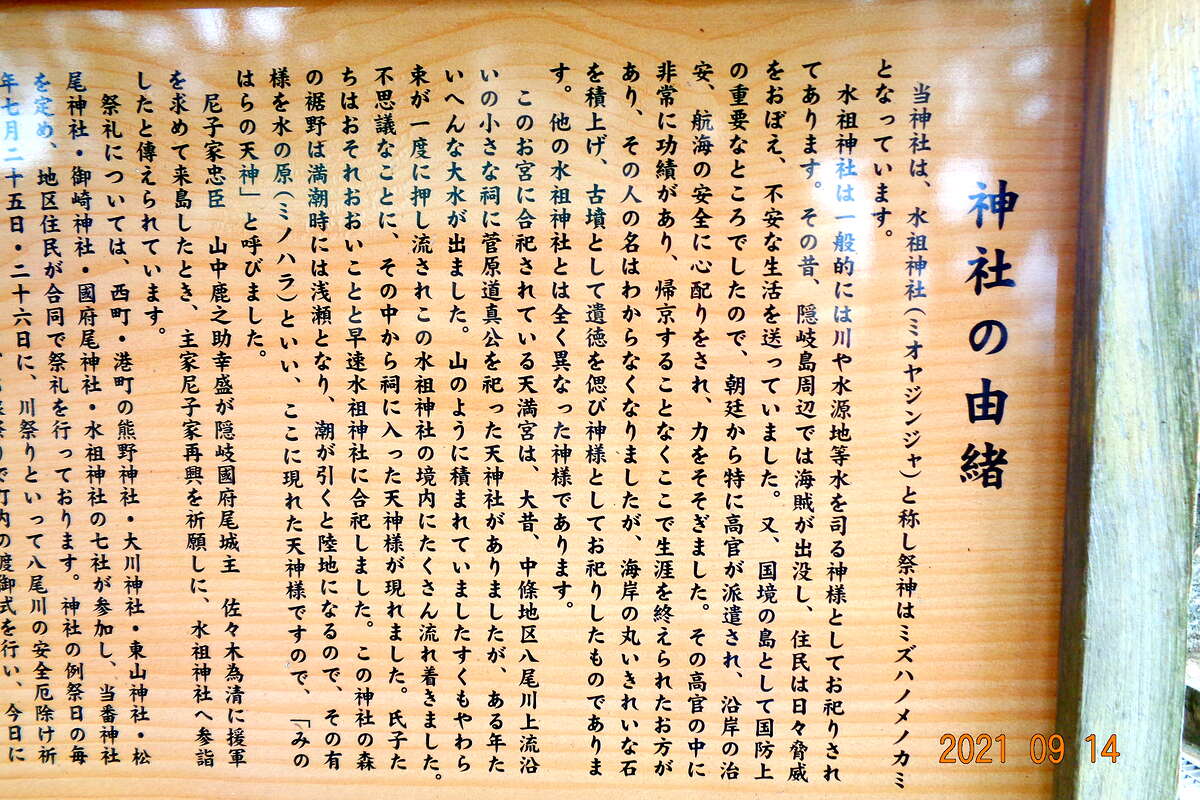 神社の由緒
当神社は、水祖神社(ミオヤジンジャ)と称し祭神はミズハノメノカミ
となっています。
水祖神社は一般的には川や水源地等水を司る神様としてお祀りされ
てあります。その昔、隠岐島周辺では海賊が出没し、住民は日々脅威
をおぼえ、不安な生活を送っていました。又、国境の島として国防上
の重要なところでしたので、朝廷から特に高官が派遣され、沿岸の治
安、航海の安全に心配りをされ、力をそそぎました。その高官の中に
非常に功績があり、帰京することなくここで生涯を終えられたお方が
あり、その人の名はわからなくなりましたが、海岸の丸いきれいな石
を積上げ、古墳として遺徳を偲び神様としてお祀りしたものでありま
す。他の水祖神社とは全く異なった神様であります。
このお宮に合祀されている天満宮は、大昔、中條地区八尾川上流沿
いの小さな祠に菅原道真公を祀った天神社がありましたが、ある年た
いへんな大水が出ました。山のように積まれていましたすくもやわら
束が一度に押し流されこの水祖神社の境内にたくさん流れ着きました。
不思議なことに、その中から祠に入った天神様が現れました。氏子た
ちはおそれおおいことと早速水祖神社に合祀しました。この神社の森
の裾野は満潮時には浅瀬となり、潮が引くと陸地になるので、その有
様を水の原(ミノハラ)といい、ここに現れた天神様ですので、「みの
はらの天神」と呼びました。
尼子家忠臣 山中鹿之助幸盛が隠岐國府尾城主 佐々木為清に援軍
を求めて来島したとき、主家尼子家再興を祈願しに、水祖神社へ参詣
したと傳えられています。
祭礼については、西町・港町の熊野神社・大川神社・東山神社・松
尾神社・御崎神社・國府尾神社・水祖神社の七社が参加し、当番神社
を定め、地区住民が合同で祭礼を行っております。神社の例祭日の毎
年七月二十五日・二十六日に、川祭りといって八尾川の安全厄除け祈
町内の渡御式を行い、今日に
2021 09 14